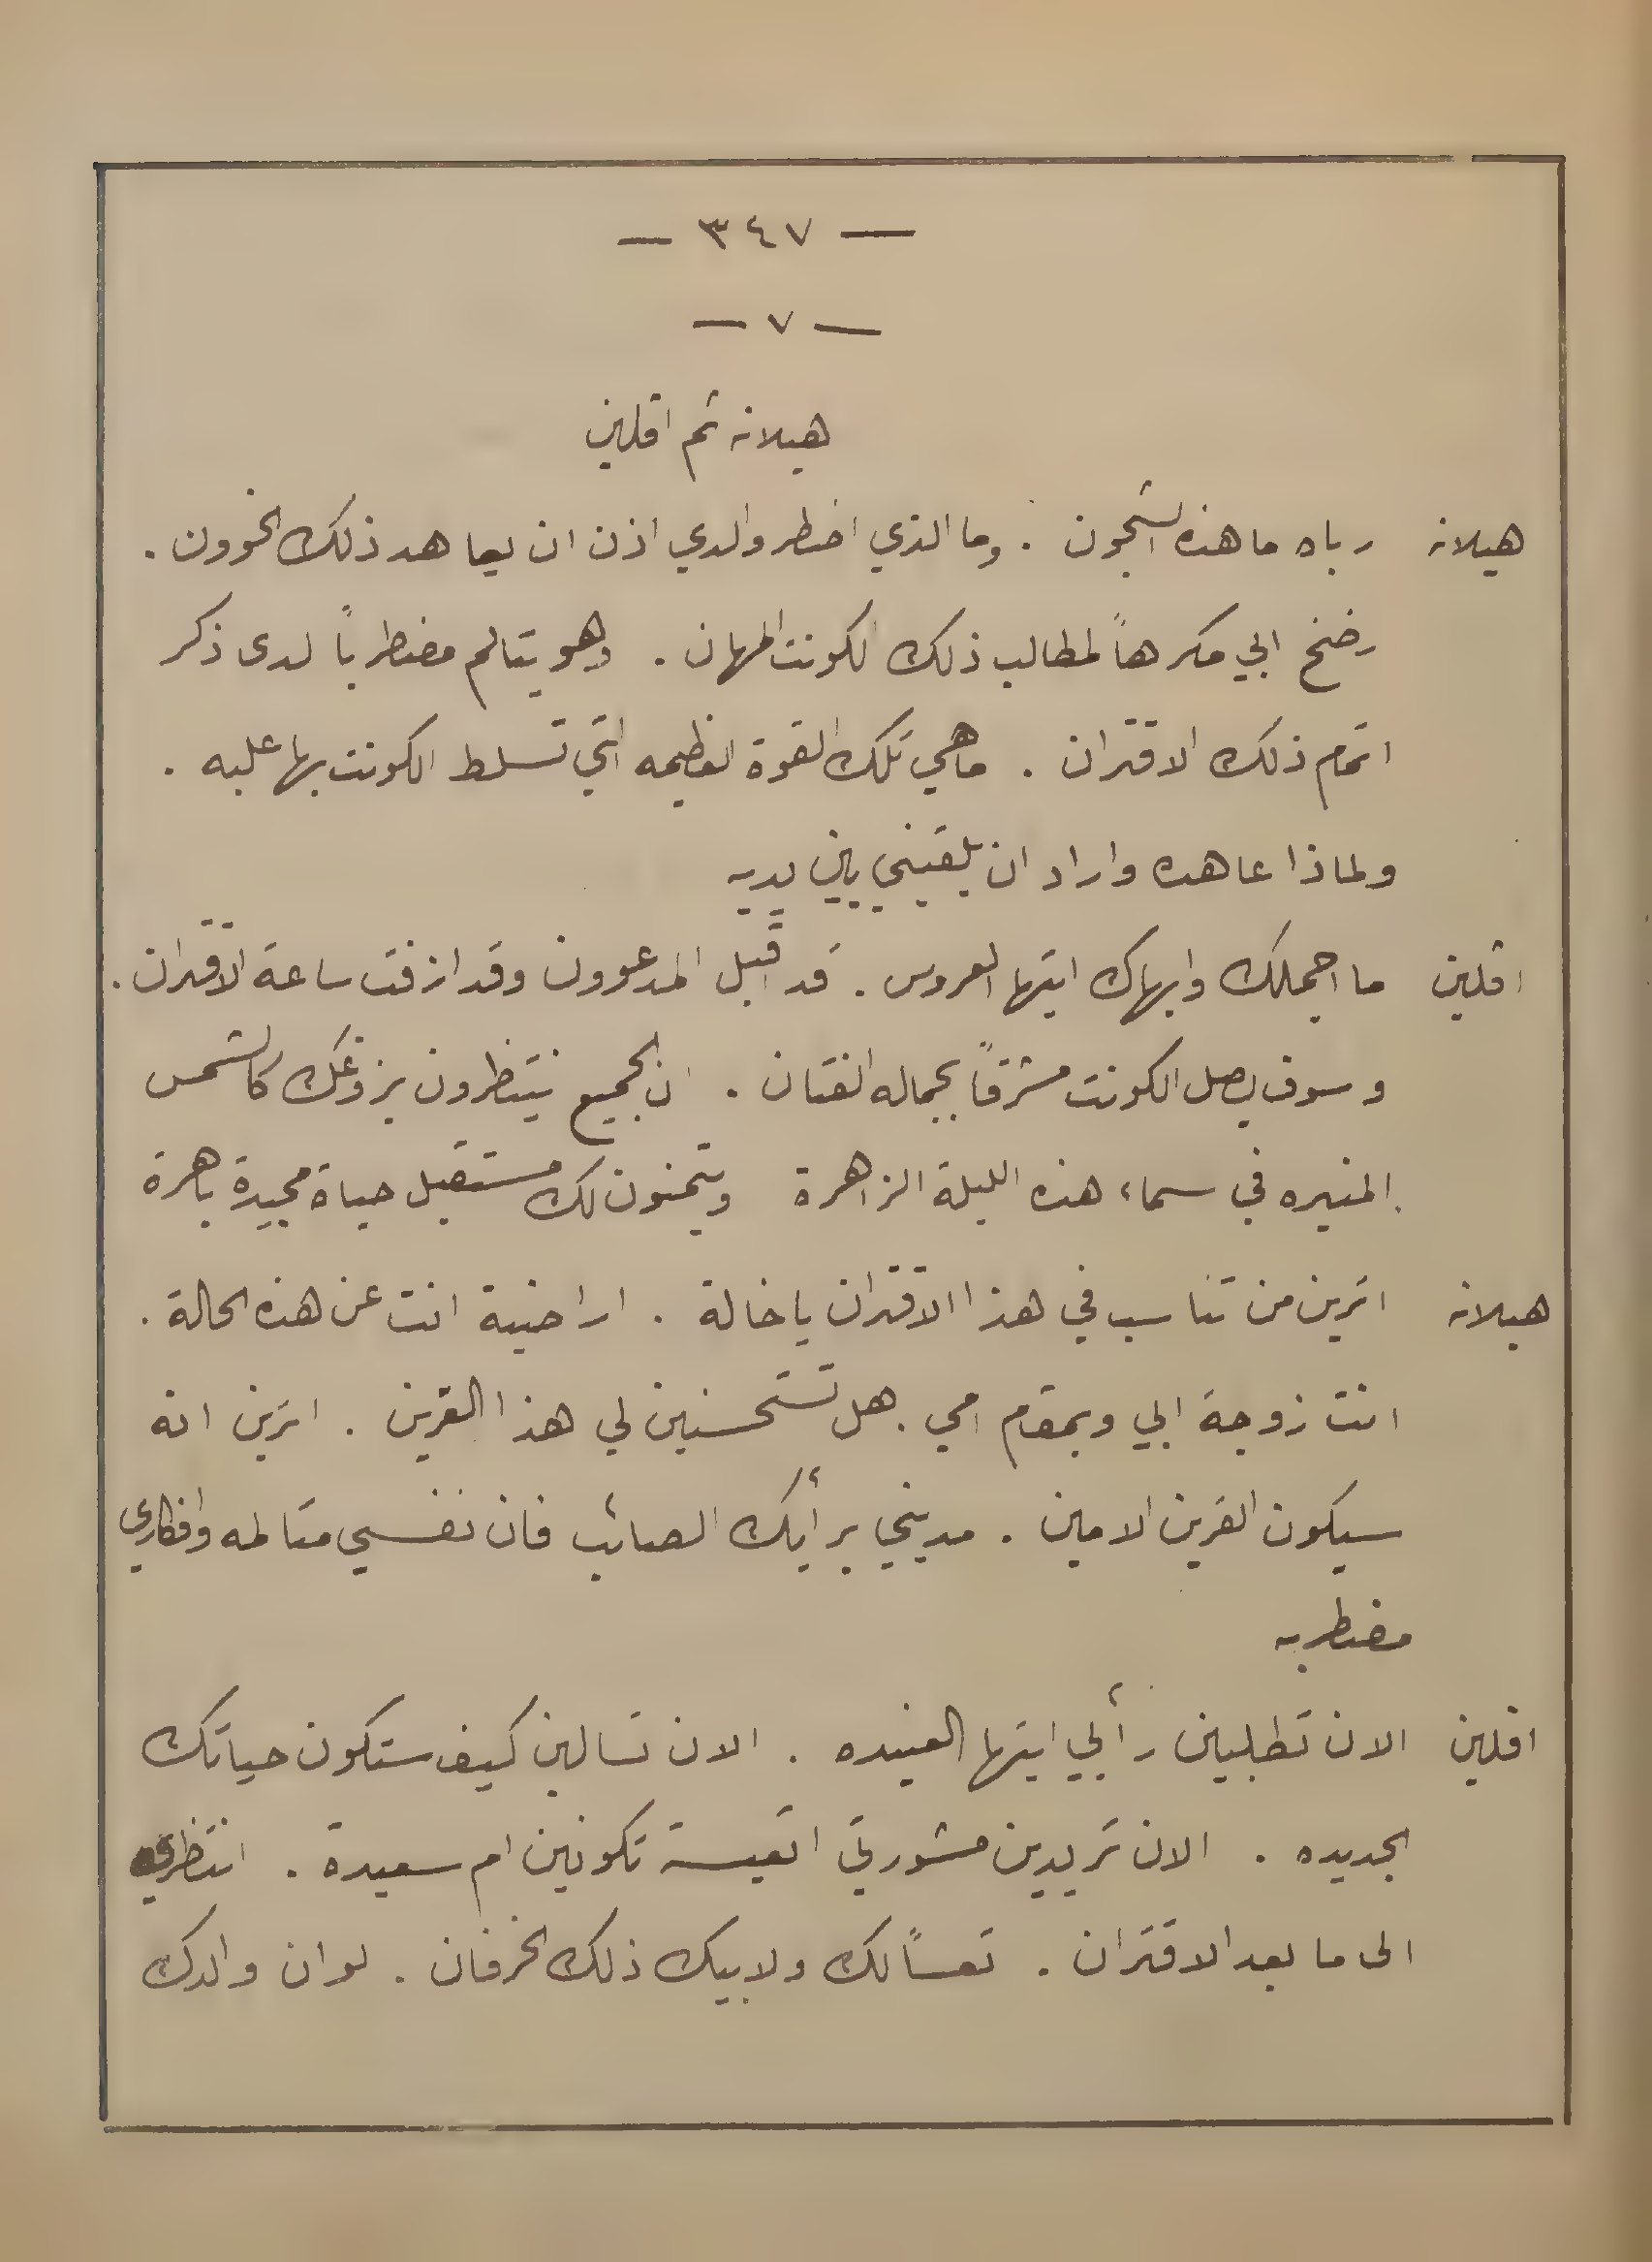 — ٣٤٧ —
— ٧ —
هيلانه ثم اقلين
هيلانه رباه ما هذه الشجون . وما الذي اضطر والدي اذن ان يعاهد ذلك الخوون .
رضخ ابي مكرهاً لمطالب ذلك الكونت المهان . وهو يتالم مضطرباً لدى ذكر
اتمام ذلك الاقتران . ماهي تلك القوة العظيمه التي تسلط الكونت بها عليه .
ولماذا عاهده واراد ان يلقيني بين يديه
اقلين ما اجملك وابهاك ايتها العروس . قد اقبل المدعوون وقد ازفت ساعة الاقتران .
وسوف يصل الكونت مشرقاً بجماله الفتان . ان الجميع ينتظرون بزوغك كالشمس
المنيره في سماء هذه الليلة الزاهرة ويتمنون لك مستقبل حياة مجيدة باهرة
هيلانه اترين من تناسب في هذا الاقتران يا خالة . اراضية انت عن هذه الحالة .
انت زوجة ابي وبمقام امي . هل تستحسنين لي هذا القرين . اترين انه
سيكون القرين الامين . مديني برأيك الصائب فان نفسي متالمه وافكاري
مضطربه
اقلين الان تطلبين رأيي ايتها العنيده . الان تسالين كيف ستكون حياتك
الجديده . الان تريدين مشورتي اتعيسة تكونين ام سعيدة . انتظري
الى ما بعد الاقتران . تعساً لك ولابيك ذلك الخرفان . لو ان والدك